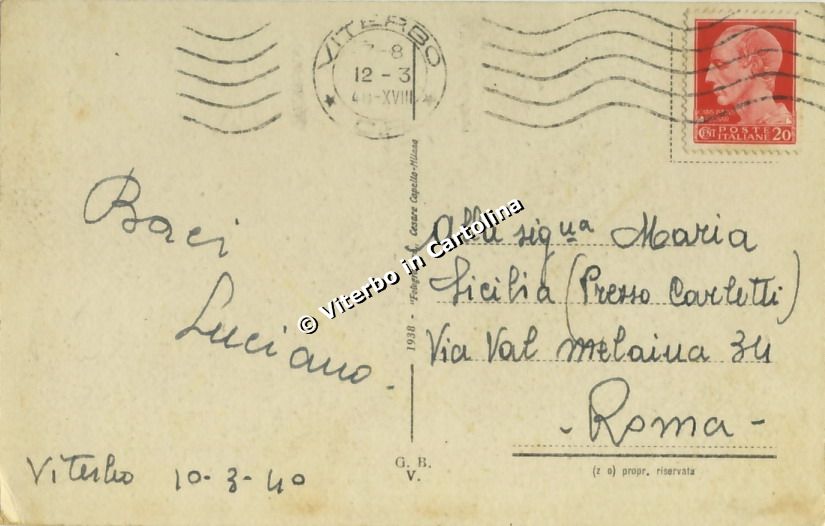 VITERBO
7-8
12 - 3
40-XVIII
POSTE
ITALIANE
CENT 20
Baci
Luciano.
Viterbo 10-3-40
© Viterbo in Cartolina
1938 - "Fotogr Cesare Capello-Milano
G. B.
V.
Alla sig.na Maria
Sicilia (Presso Carletti)
Via Val Melaina 34
- Roma -
(z o) propr. riservata